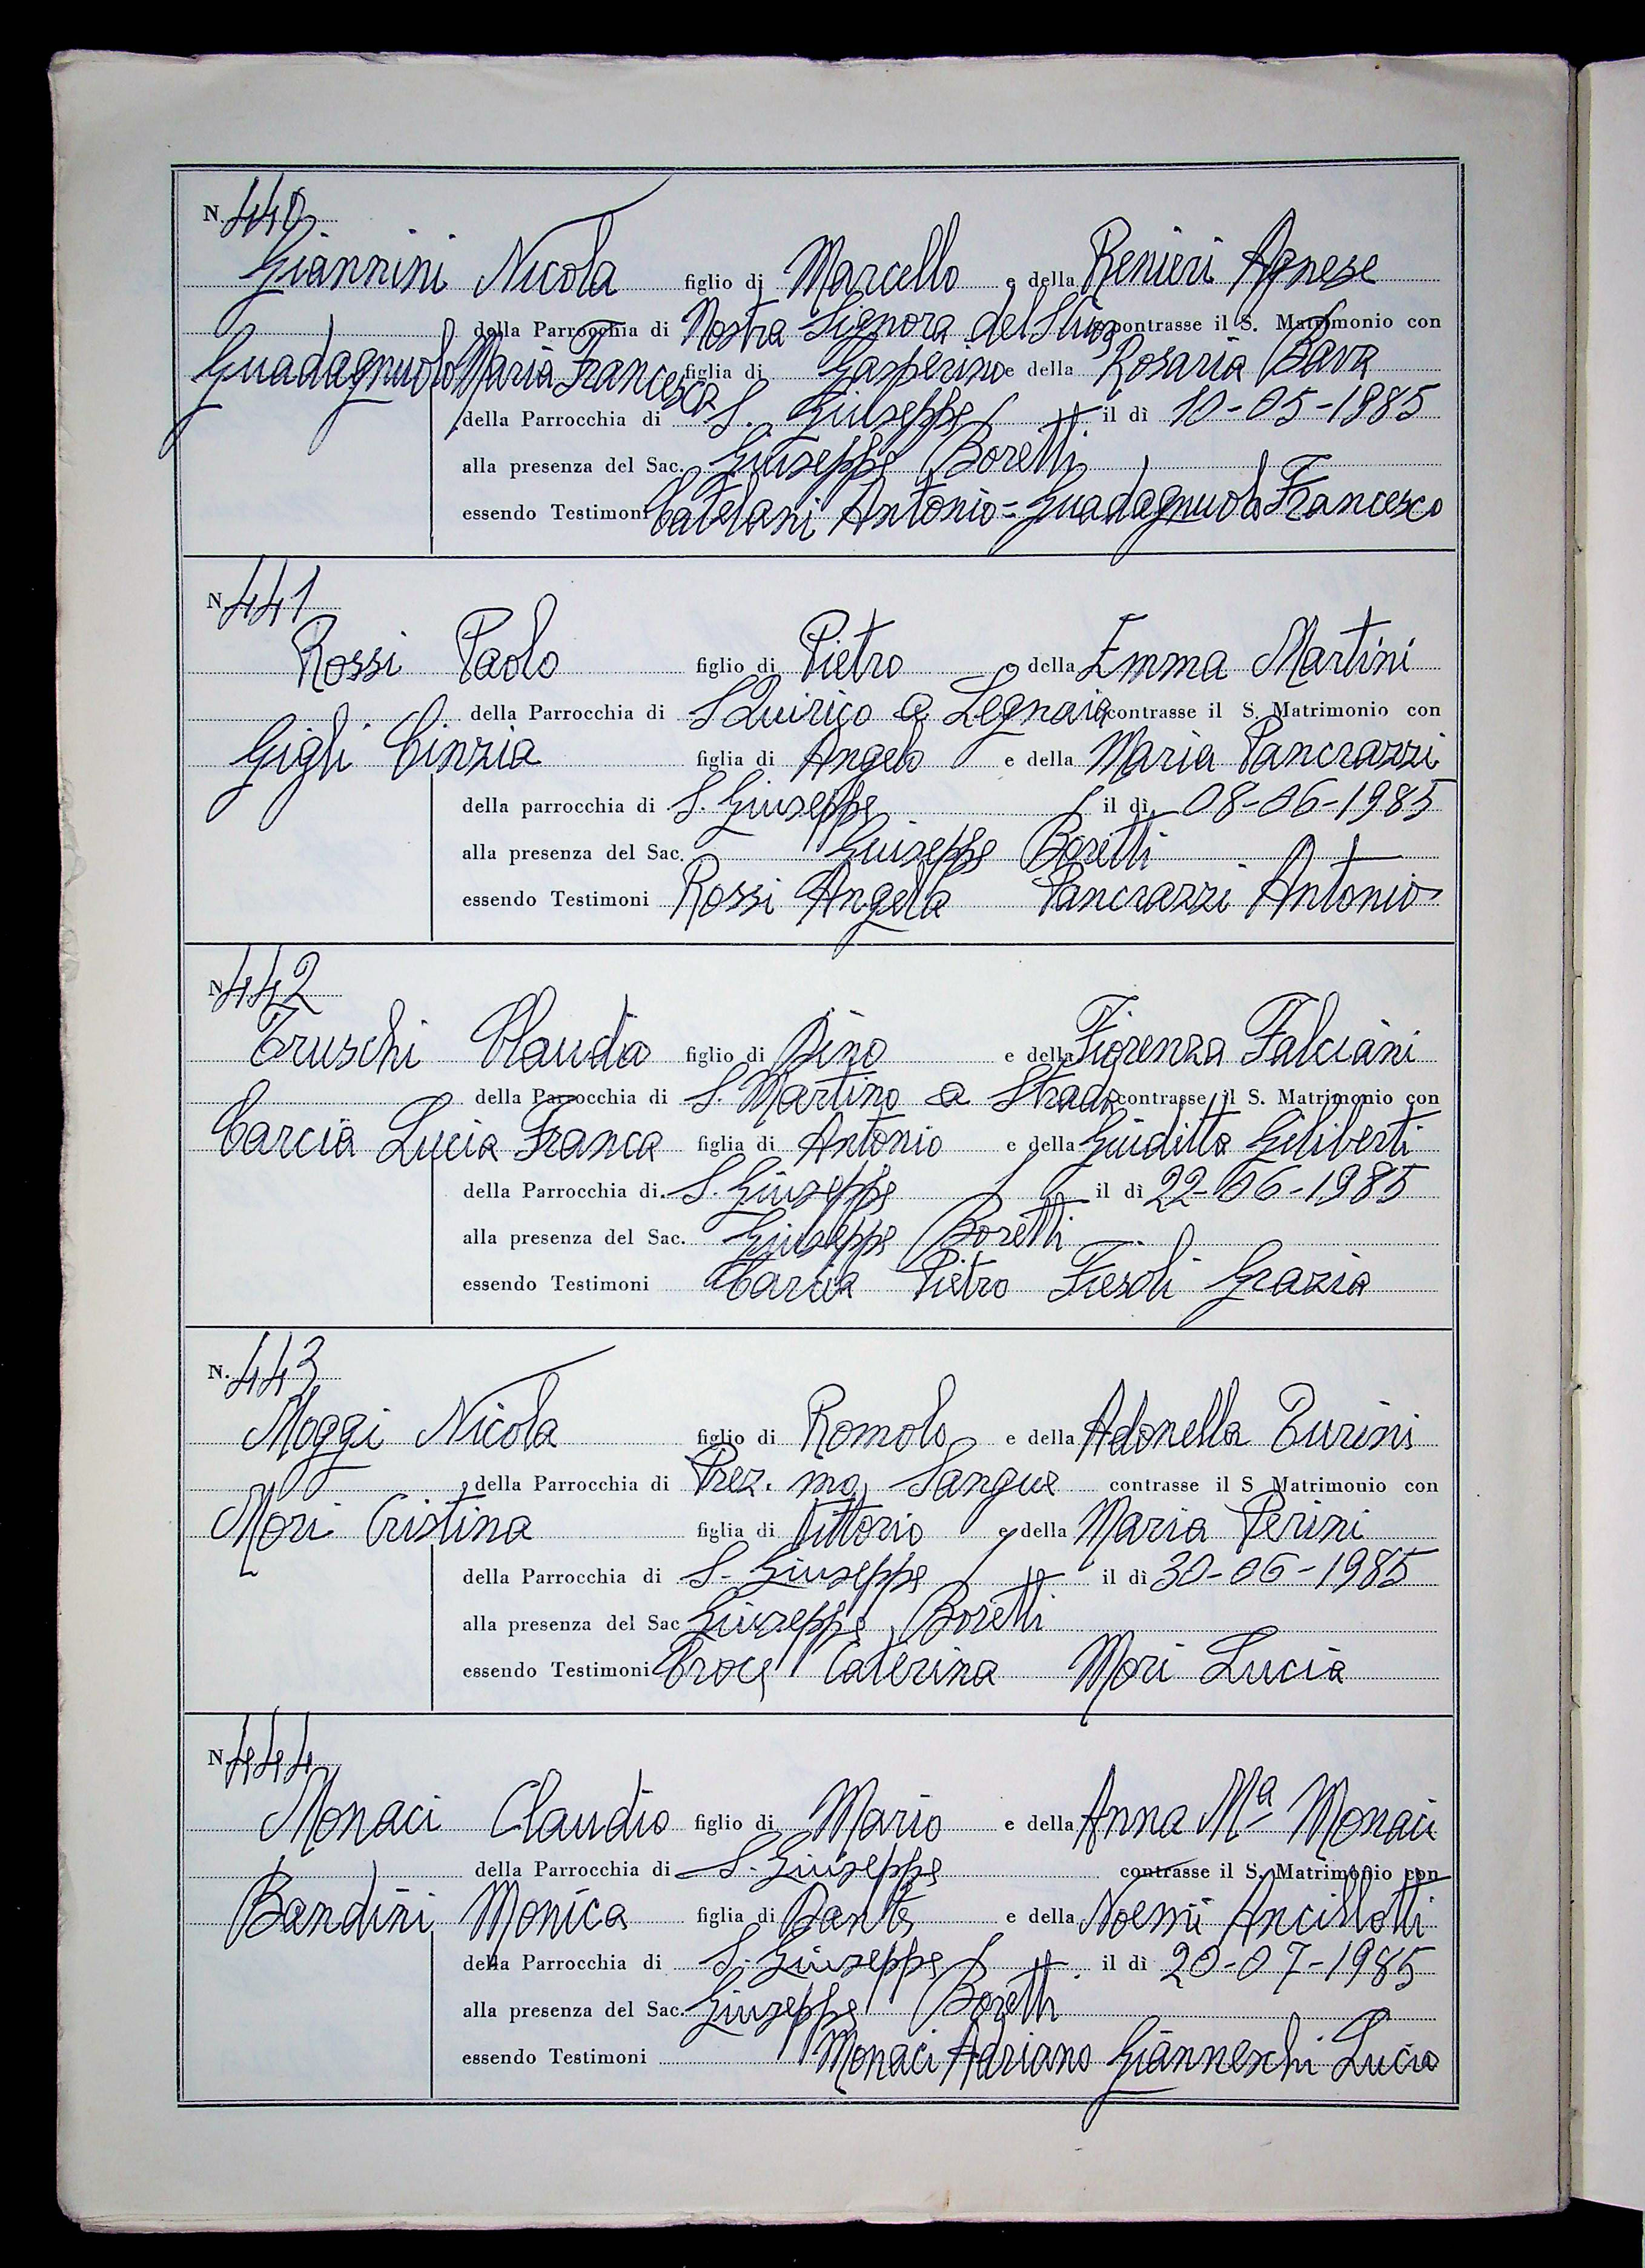 N. 440
Giannini Nicola figlio di Marcello e della Renieri Agnese
della Parrocchia di Nostra Signora del contrasse il S. Matrimonio con
Guadagnuolo Maria Francesca figlia di Gasperino e della Rosaria Bava
della Parrocchia di S. Giuseppe il dì 10-05-1985
alla presenza del Sac. Giuseppe Boretti
essendo Testimoni Catelani Antonio = Guadagnuolo Francesco
N 441
Rossi Paolo figlio di Pietro e della Emma Martini
della Parrocchia di S Quirico a Legnaia contrasse il S. Matrimonio con
Gigli Cinzia figlia di Angelo e della Maria Pancrazzi
della parrocchia di S. Giuseppe il dì 08-06-1985
alla presenza del Sac. Giuseppe Boretti
essendo Testimoni Rossi Angela Pancrazzi Antonio
N 442
Truschi Claudio figlio di Dino e della Fiorenza Falciani
della Parrocchia di S. Martino a Strada contrasse il S. Matrimonio con
Carcia Lucia Franca figlia di Antonio e della Giuditta Giliberti
della Parrocchia di. S. Giuseppe il dì 22-06-1985
alla presenza del Sac. Giuseppe Boretti
essendo Testimoni Carcia Pietro Fiesoli Grazia
N. 443
Moggi Nicola figlio di Romolo e della Adonella Turini
della Parrocchia di Prez. mo Sangue contrasse il S Matrimonio con
Mori Cristina figlia di Vittorio e della Maria Perini
della Parrocchia di S. Giuseppe il dì 30-06-1985
alla presenza del Sac Giuseppe Boretti
essendo Testimoni Croce Caterina Mori Lucia
N. 444
Monaci Claudio figlio di Mario e della Anna Mª Monaci
della Parrocchia di S. Giuseppe contrasse il S. Matrimonio con
Bandini Monica figlia di Dante e della Noemi Ancillotti
della Parrocchia di S. Giuseppe il dì 20-07-1985
alla presenza del Sac. Giuseppe Boretti
essendo Testimoni Monaci Adriano Gianneschi Lucia